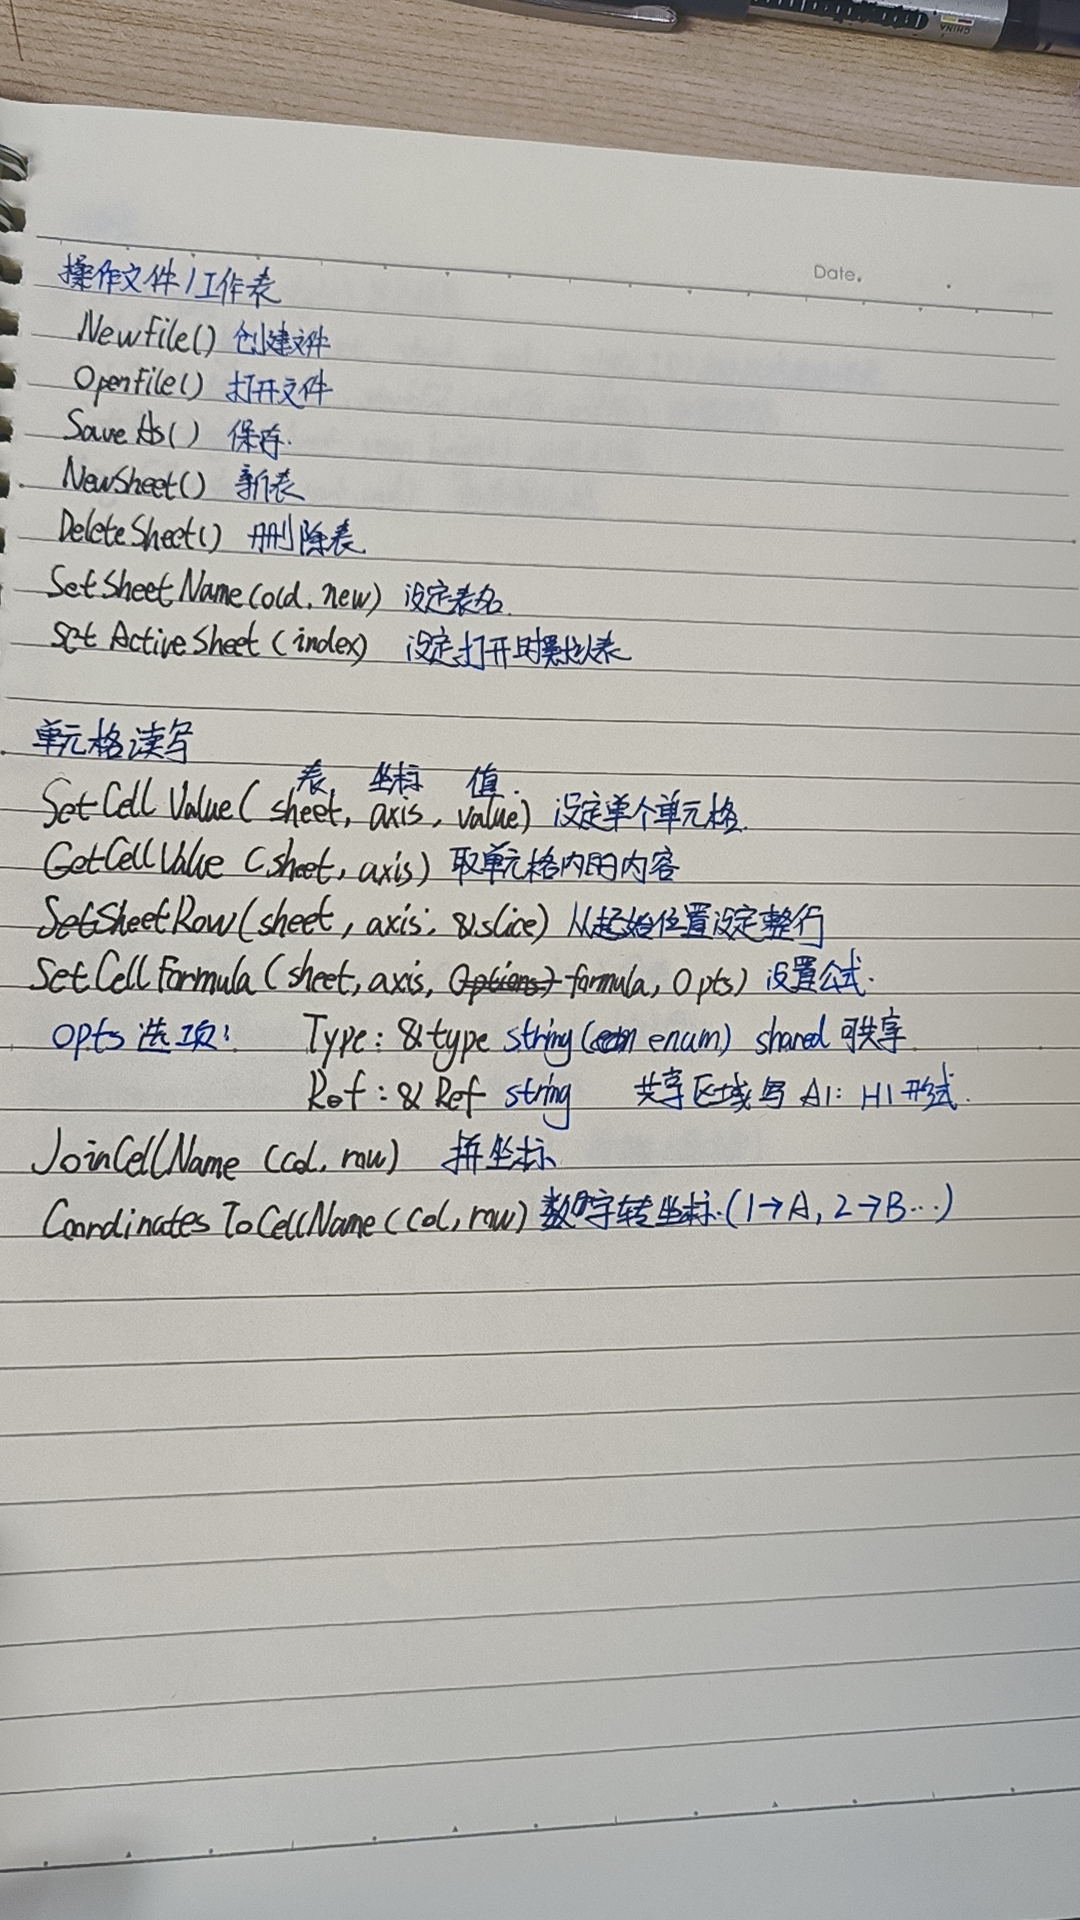 CHINA
Date.
操作文件/工作表
NewFile() 创建文件
OpenFile() 打开文件
SaveAs() 保存.
NewSheet() 新表
DeleteSheet() 删除表
SetSheetName(old, new) 设定表名
Set ActiveSheet (index) 设定打开时默认表
单元格读写
表 坐标 值
SetCell Value( sheet, axis, value) 设定单个单元格
GetCellValue (sheet, axis) 取单元格内的内容
SetSheetRow(sheet, axis, &slice) 从起始位置设定整行
SetCellFormula(sheet, axis, formula, Opts) 设置公式.
opts 选项: Type: &type string(enum) shared 可共享
Ref: & Ref string 共享区域写 A1: H1 形式.
JoinCellName (col, row) 拼坐标
CoordinatesToCellName(col, row) 数字转坐标.(1→A, 2→B…)